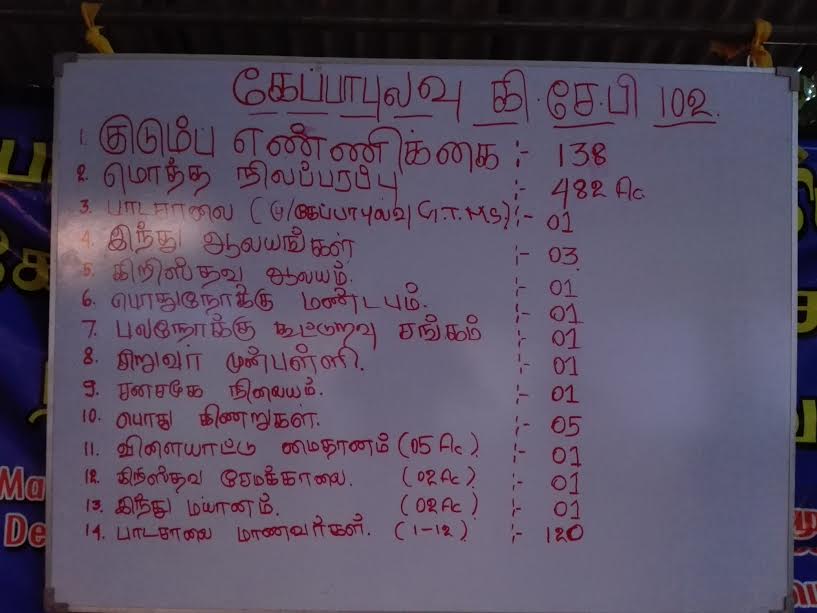 கேப்பாபுலவு கி.சே.பி 102.
1. குடும்ப எண்ணிக்கை :- 138
2. மொத்த நிலப்பரப்பு :- 482 Ac
3. பாடசாலை (மு/கேப்பாபுலவு G.T.M.S) :- 01
4. இந்து ஆலயங்கள் :- 03
5. கிறிஸ்தவ ஆலயம். :- 01
6. பொதுநோக்கு மண்டபம். :- 01
7. பலநோக்கு கூட்டுறவு சங்கம் :- 01
8. சிறுவர் முன்பள்ளி. :- 01
9. சனசமூக நிலையம். :- 01
10. பொது கிணறுகள். :- 05
11. விளையாட்டு மைதானம் (05 Ac) :- 01
12. கிறிஸ்தவ சேமக்காலை. (02 Ac) :- 01
13. இந்து மயானம். (02 Ac) :- 01
14. பாடசாலை மாணவர்கள். (1-12) :- 120
Ma
De